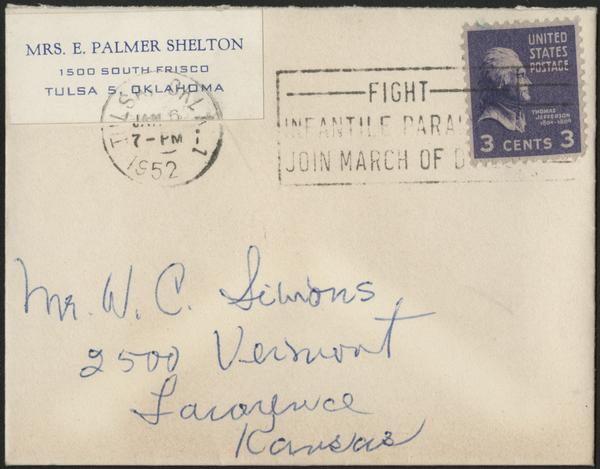 MRS. E. PALMER SHELTON
1500 SOUTH FRISCO
TULSA 5, OKLAHOMA
TULSA, OKLA. 1
JAN 6
7 - PM
1952
FIGHT
INFANTILE PARA
JOIN MARCH OF D
UNITED
STATES
POSTAGE
THOMAS
JEFFERSON
1801-1809
3 CENTS 3
Mr. W. C. Simons
2500 Vermont
Lawrence
Kansas